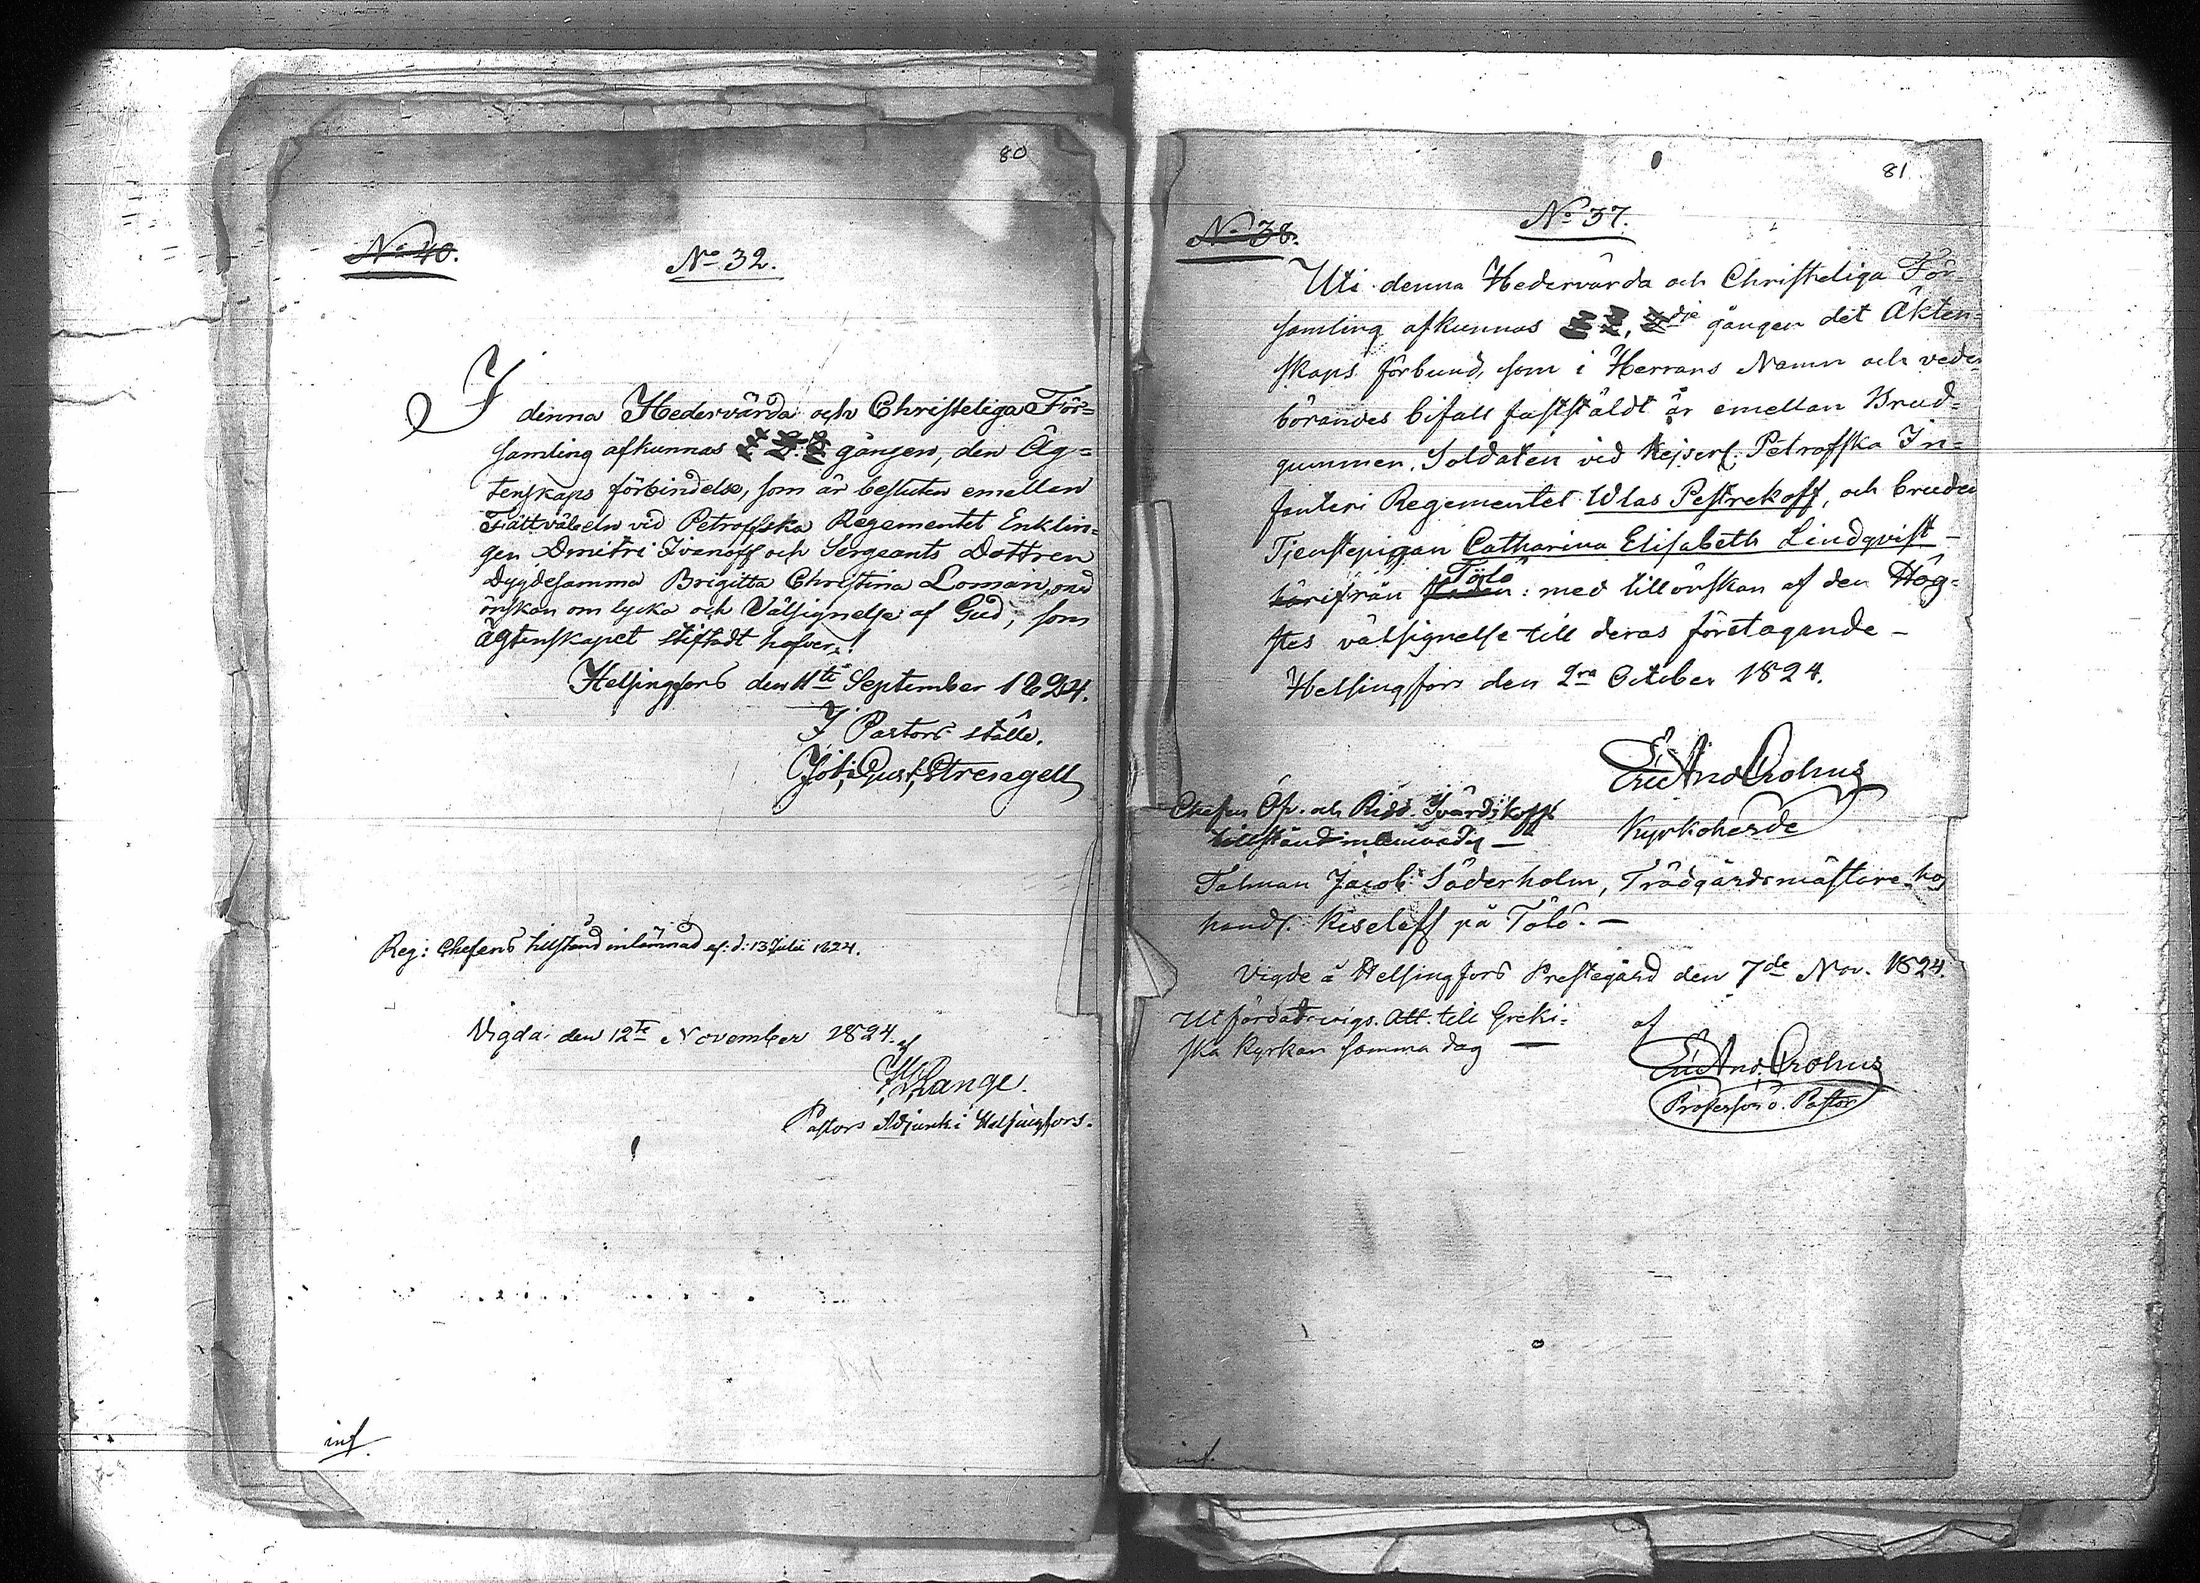 80
No 40.
No 32.
I denna Hedervärda och Christeliga För=
samling afkunnas gången, den Äg=
tenskaps förbindelse, som är besluten emellan
Fältväbeln vid Petroffska Regementet Enklin=
gen Dmitri Ivanoff och Sergeants Dottren
Dygdesamma Brigitta Christina Loman, med
önskan om lycka och Välsignelse af Gud, som
Ägtenskapet stiftadt hafver!
Helsingfors den 11te September 1824.
I Pastors ställe.
Joh: Gust:
Reg: Chefens tillstånd inlämnad af: d: 13 Julii 1824.
Vigda den 12te November 1824. af
Lange.
Pastors Adjunkt i Helsingfors.
inf.
81
No 38.
No 37.
Uti denna Hedervärda och Christeliga För=
samling afkunnas dje gången det Äkten=
skaps förbund, som i Herrans Namn och veder=
börandes bifall fastställdt är emellan Brud=
gummen, Soldaten vid Kejserl. Petroffska In=
fanteri Regementet Wlas Pestrekoff, och bruden
Tjenstepigan Catharina Elisabeth Lindqvist –
härifrån staden Tölö: med tillönskan af den Hög=
stes välsignelse till deras företagande –
Helsingfors den 2ra October 1824.
Eric And. Crohns
Kyrkoherde
Chefens Öf. och Ridd.
tillstånd inlemnadt –
Talman Jacob Söderholm, Trädgårdsmästare hos
handl. Kiseleff på Tölö. –
Vigde å Helsingfors Prestegård den 7de Nov. 1824.
Utfärdat vigs. Att. till Greki=
ska Kyrkan samma dag –
af
Eric And. Crohns
Professor o. Pastor
inf.